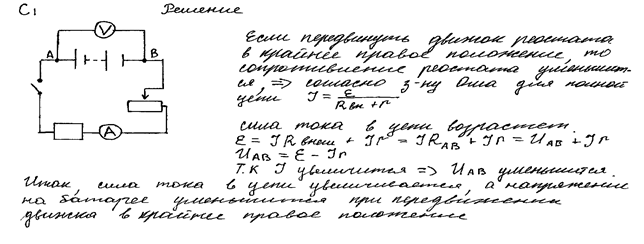 C1 Решение
V
A B
A
Если передвинуть движок реостата
в крайнее правое положение, то
сопротивление реостата уменьшит-
ся, => согласно з-ну Ома для полной
цепи J = ε / (Rвн + r)
сила тока в цепи возрастет.
ε = JRвнеш + Jr = JRAB + Jr = UAB + Jr
UAB = ε - Jr
Т.К J увеличится => UAB уменьшится.
Итак, сила тока в цепи увеличивается, а напряжение
на батарее уменьшится при передвижении
движка в крайнее правое положение